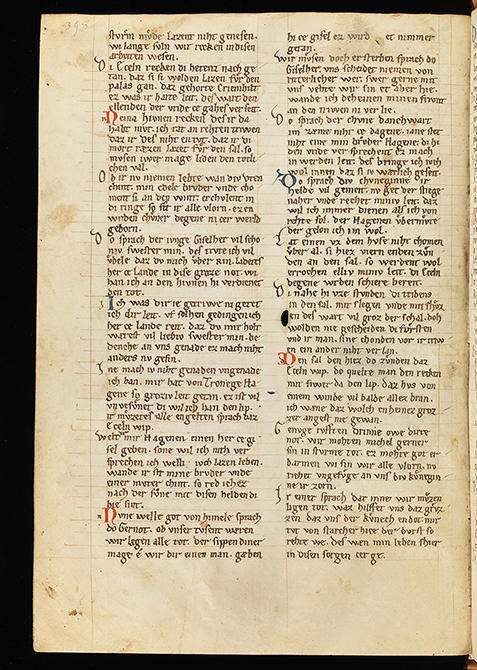 395
sturm mvde lazent niht genesen.
wi lange svln wir recken in disen
arbeiten wesen.
Di Eceln recken di hetenz nach ge
tan. daz si si wolden lazen fvr den
palas gan. daz gehorte Criemhilt
ez was ir harte leit. des wart den
ellenden der vride ce gahes verseit.
Neina hivnen recken des ir da
habt mvt. ich rat an rehten triwen
daz ir des niht entvt. daz ir di
mort ræzen lazet fvr den sal. so
mvsen iwer mage liden den totli
chen val.
Ob ir nv niemen lebte wan div vren
chint. min edele brvder vnde cho
ment si an den wint. erchvlent in
di ringe so sit ir alle vlorn. ezen
wrden chvner degene nie cer werld
geborn.
Do sprach der ivnge Giselher vil scho
niv swester min. des trvte ich vil
vbele daz dv mich vber rin. ladetest
her ce lande in dise groze not. wi
han ich an den hivnen hi verdienet
den tot.
Ich was dir ie getriwe ni getet
ich dir leit. vf solhen gedingen ich
her ce lande reit. daz dv mir holt
wærest vil liebiv swester min. be
denche an vns genade ez mach niht
anders nv gesin.
Ine mach iv niht genaden vngenade
ich han. mir hat von Tronege Ha
gene so groziv leit getan. ez ist vil
vnversvnet di wil ich han den lip.
ir mvzezes alle engelten sprach daz
Eceln wip.
Welt mir Hagenen einen her ce gi
sel geben. sone wil ich niht ver
sprechen ich welle ivch lazen leben.
wande ir sit mine brvder vnde
einer mvter chint. so red ich ez
nach der svne mit disen helden di
hie sint.
Nvne welle got von himele sprach
do Gernot. ob vnser tvsent wæren
wir lægen alle tot. der sippen diner
mage e wir dir einen man. gæben
hi ce gisel ez wird et nimmer
getan.
Wir mvsen doch ersterben sprach do
Giselher. vns scheidet niemen von
ritterlicher wer. swer gerne mit
vns vehte wir sin et aber hie.
wande ich deheinen minen frivnt
an den triwen ni verlie.
Do sprach der chvne Danchwart
im zæme niht ce dagene. iane stet
niht eine min brvder Hagene. di hi
den vride versprechent ez mach
in werden leit. des bringe ich ivch
wol innen daz si iv wærlich geseit.
Do sprach div chvneginne ir
helde vil gemeit. nv get der stiege
naher vnde rechet miniv leit. daz
wil ich immer dienen als ich von
rehte sol. der Hagenen vbermvte
der gelon ich im wol.
Lat einen vz dem hvse niht chomen
vber al. si hiez viern enden zvn
den an den sal. so werdent wol
errochen elliv miniv leit. di Eceln
degene wrden schiere bereit.
Di nahe hi vze stvnden di triben
in den sal. mit slegen vnde mit schvz
zen des wart vil groz der schal. doch
wolden nie gescheiden di fvrsten
vnd ir man. sine chonden vor ir triw
en ein ander niht verlan.
Den sal den hiez do zvnden daz
Eceln wip. do qvelte man den recken
mit fiwer da den lip. daz hvs von
einem winde vil balde allez bran.
ich wæne daz volch en heinez groz
zer angest nie gewan.
Genvge rvften drinne owe dirre
not. wir mohten michel gerner
sin in stvrme tot. ez mohte got er
barmen wi sin wir alle vlorn. nv
richet vngefvge an vns div kvnegin
ne ir zorn.
Ir einer sprach dar inne wir mvzen
ligen tot. waz hilffet vns daz grvz
zen daz vns der kvnech enbot. mir
tvt von starcher hice der dvrst so
rehte we. des wæn min leben schier
in disen sorgen cerge.